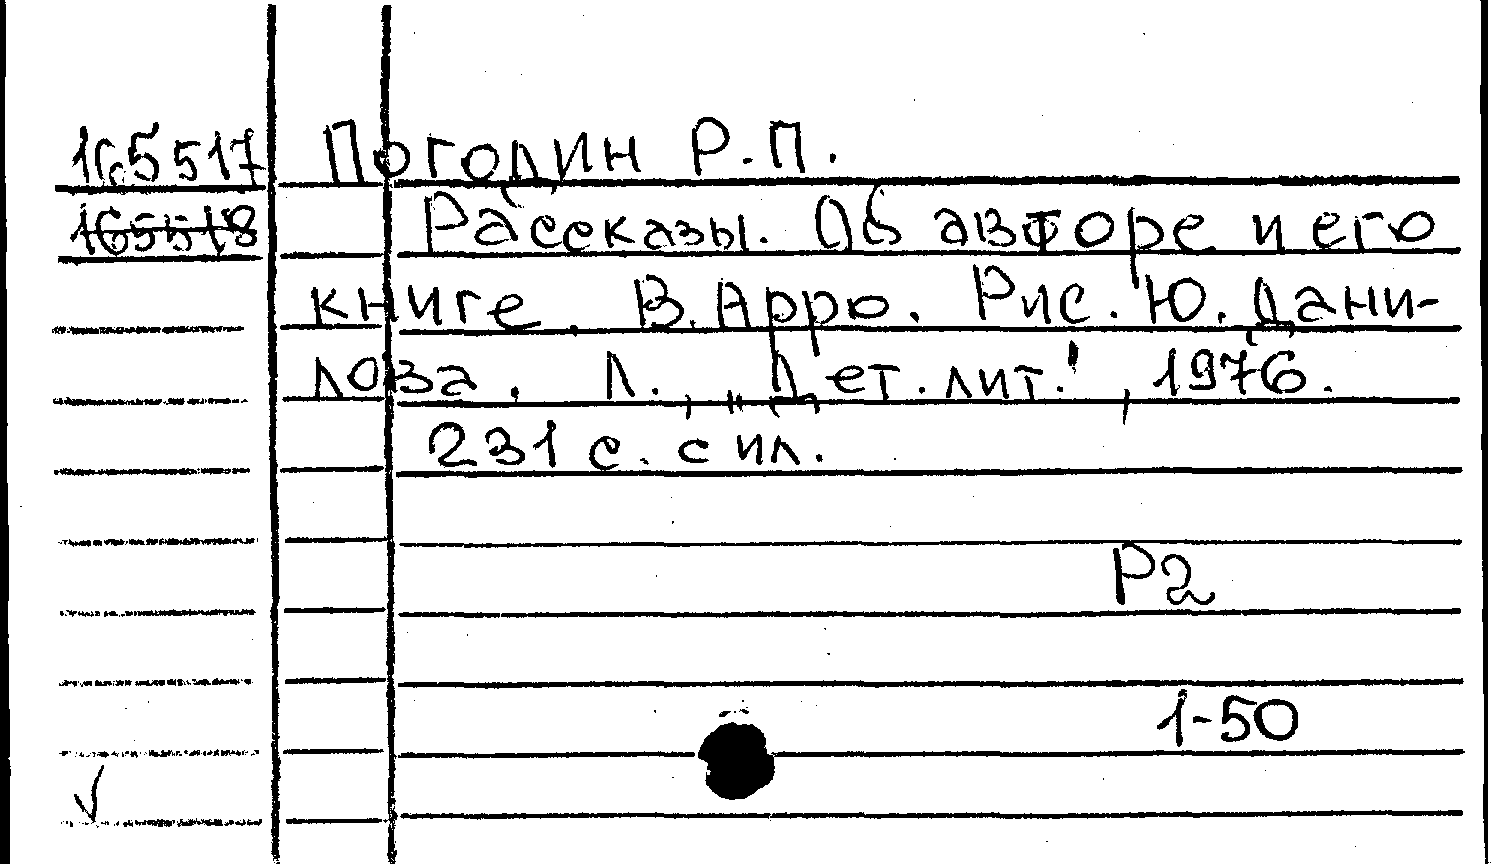 165517 Погодин Р.П.
165518 Рассказы. Об авторе и его
книге В. Арро. Рис. Ю. Дани-
лова. Л., „Дет. лит.", 1976.
231 с. с ил.
Р2
1-50